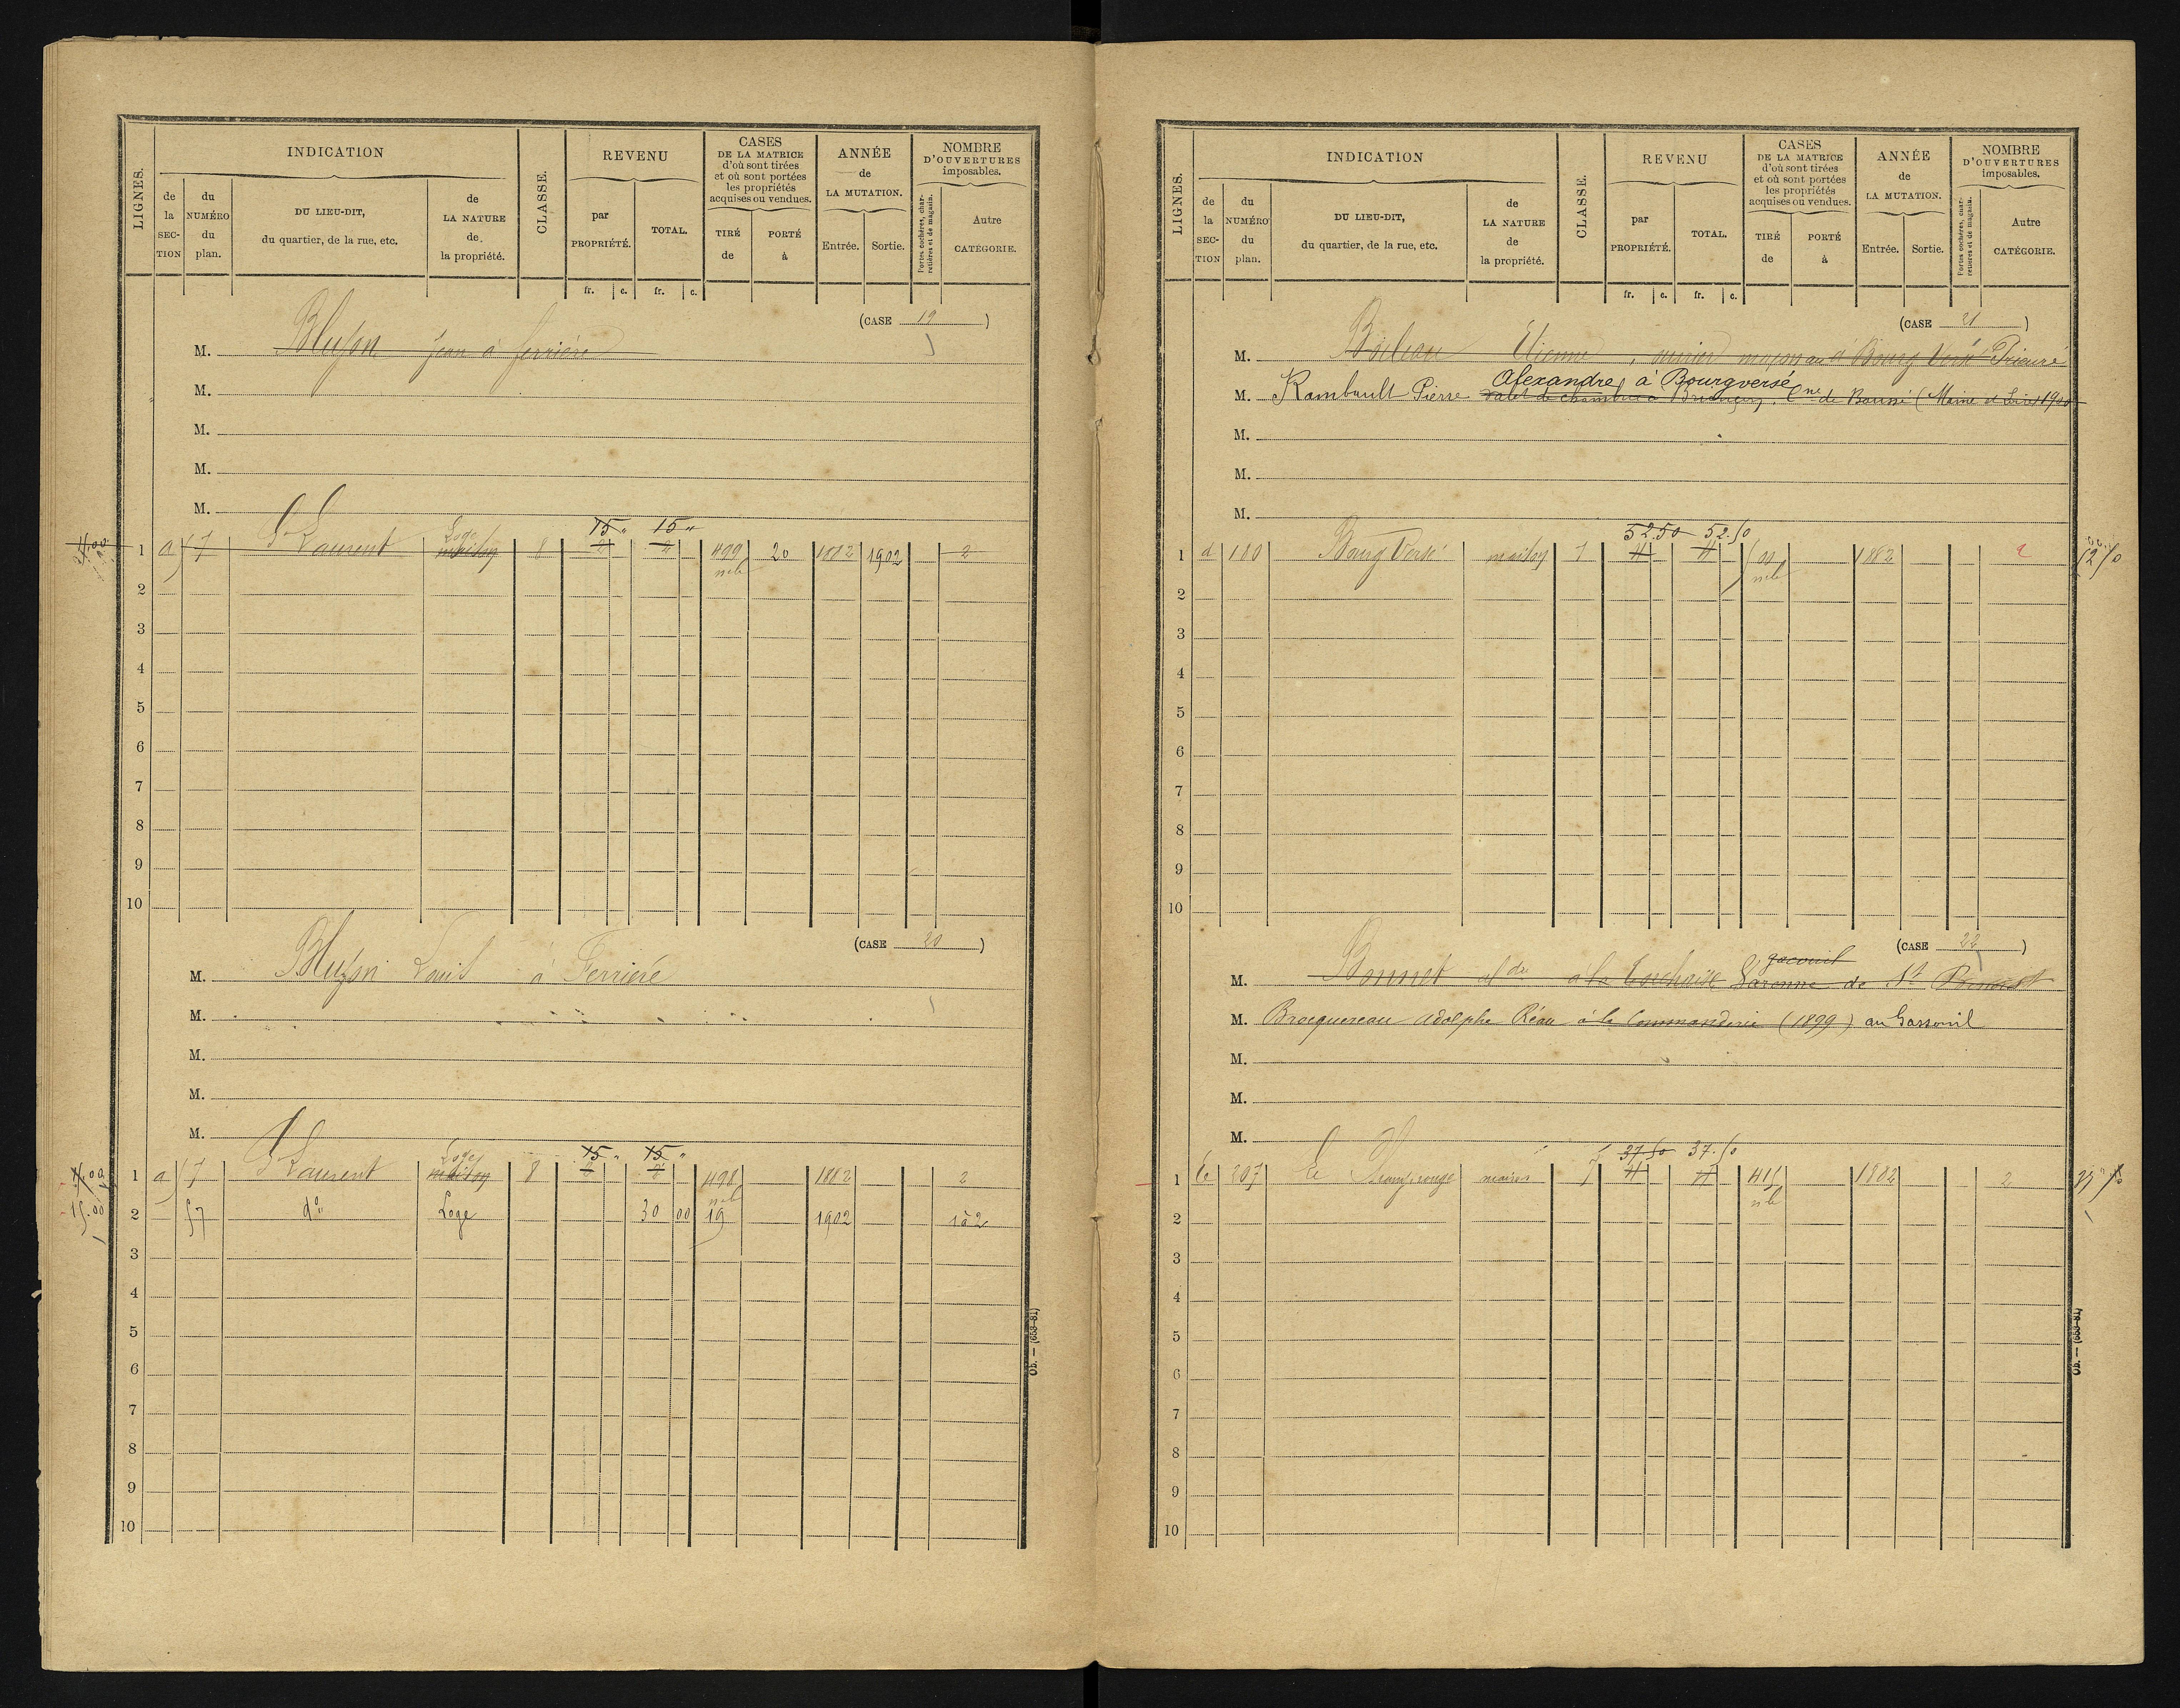 LIGNES.
INDICATION
de la SECTION
du NUMÉRO du plan.
DU LIEU-DIT, du quartier, de la rue, etc.
de LA NATURE de la propriété.
CLASSE.
REVENU
par PROPRIÉTÉ.
TOTAL.
CASES DE LA MATRICE d'où sont tirées et où sont portées les propriétés acquises ou vendues.
TIRÉ de
PORTÉ à
ANNÉE de LA MUTATION.
Entrée.
Sortie.
NOMBRE D'OUVERTURES imposables.
Portes cochères, charretières et de magasin.
Autre CATÉGORIE.
fr. c. fr. c.
(CASE 19)
M. Jean à ferrière
M.
M.
M.
M.
15 " 15 "
Loge
1 a 57 St Laurent maison 8 2 2 499 20 1882 1902 2
2
3
4
5
6
7
8
9
10
(CASE 20)
M. Louis à Ferrière
M.
M.
M.
M.
15 " 15 "
Loge
1 a 57 St Laurent maison 8 2 2 498 1882 2
15.00 2 57 do Loge 30 00 19 1902 1à2
3
4
5
6
7
8
9
10
Ob. — (653-81)
LIGNES.
INDICATION
de la SECTION
du NUMÉRO du plan.
DU LIEU-DIT, du quartier, de la rue, etc.
de LA NATURE de la propriété.
CLASSE.
REVENU
par PROPRIÉTÉ.
TOTAL.
CASES DE LA MATRICE d'où sont tirées et où sont portées les propriétés acquises ou vendues.
TIRÉ de
PORTÉ à
ANNÉE de LA MUTATION.
Entrée.
Sortie.
NOMBRE D'OUVERTURES imposables.
Portes cochères, charretières et de magasin.
Autre CATÉGORIE.
fr. c. fr. c.
(CASE 21)
M. Etienne, maçon au Prieuré
Alexandre, à Bourgversé
M. Rambault Pierre valet de chambre à Briançon, Cne de (Maine et Loire) 1900
M.
M.
M.
52.50 52.50
1 d 180 Bourg Versé maison 7 4 4 1882 2
2
3
4
5
6
7
8
9
10
(CASE 22)
M. Bonnet à la Varenne de St
M. Brocquereau Adolphe Réau à la Commanderie (1899) au Gassouil
M.
M.
M.
37.50 37.50
1 207 maison 7 4 4 1882 2
2
3
4
5
6
7
8
9
10
Ob. — (653-81)